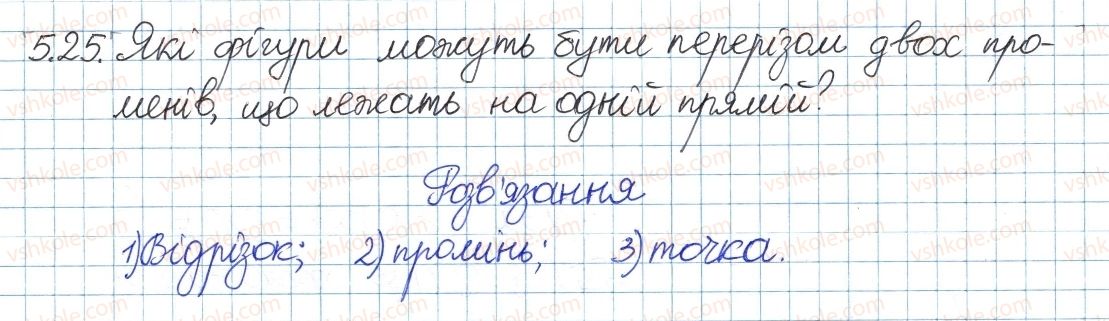 5.25. Які фігури можуть бути перерізом двох про-
менів, що лежать на одній прямій?
Розв'язання
1) Відрізок; 2) промінь; 3) точка.